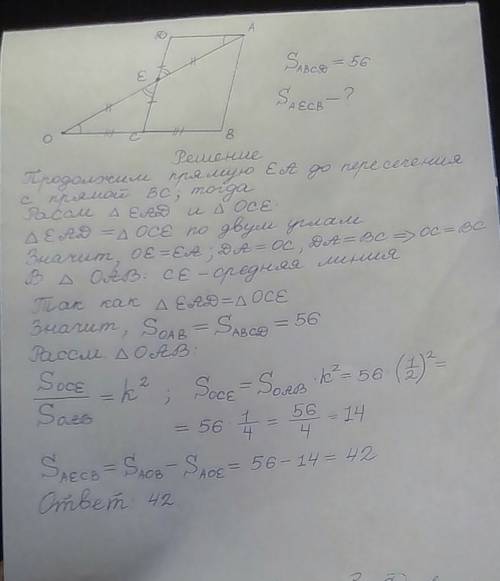 D A
S_ABCD = 56
E
S_AECB - ?
O C B
Решение
Продолжим прямую EA до пересечения
с прямой BC, тогда
Рассм △EAD и △OCE.
△EAD = △OCE по двум углам
Значит, OE=EA; DA=OC, DA=BC ⇒ OC=BC
В △ OAB: CE - средняя линия
Так как △EAD=△OCE
Значит, S_OAB = S_ABCD = 56
Рассм △OAB:
S_OCE / S_OAB = k² ; S_OCE = S_OAB · k² = 56 · (1/2)² =
= 56 · 1/4 = 56/4 = 14
S_AECB = S_AOB - S_AOE = 56 - 14 = 42
Ответ 42